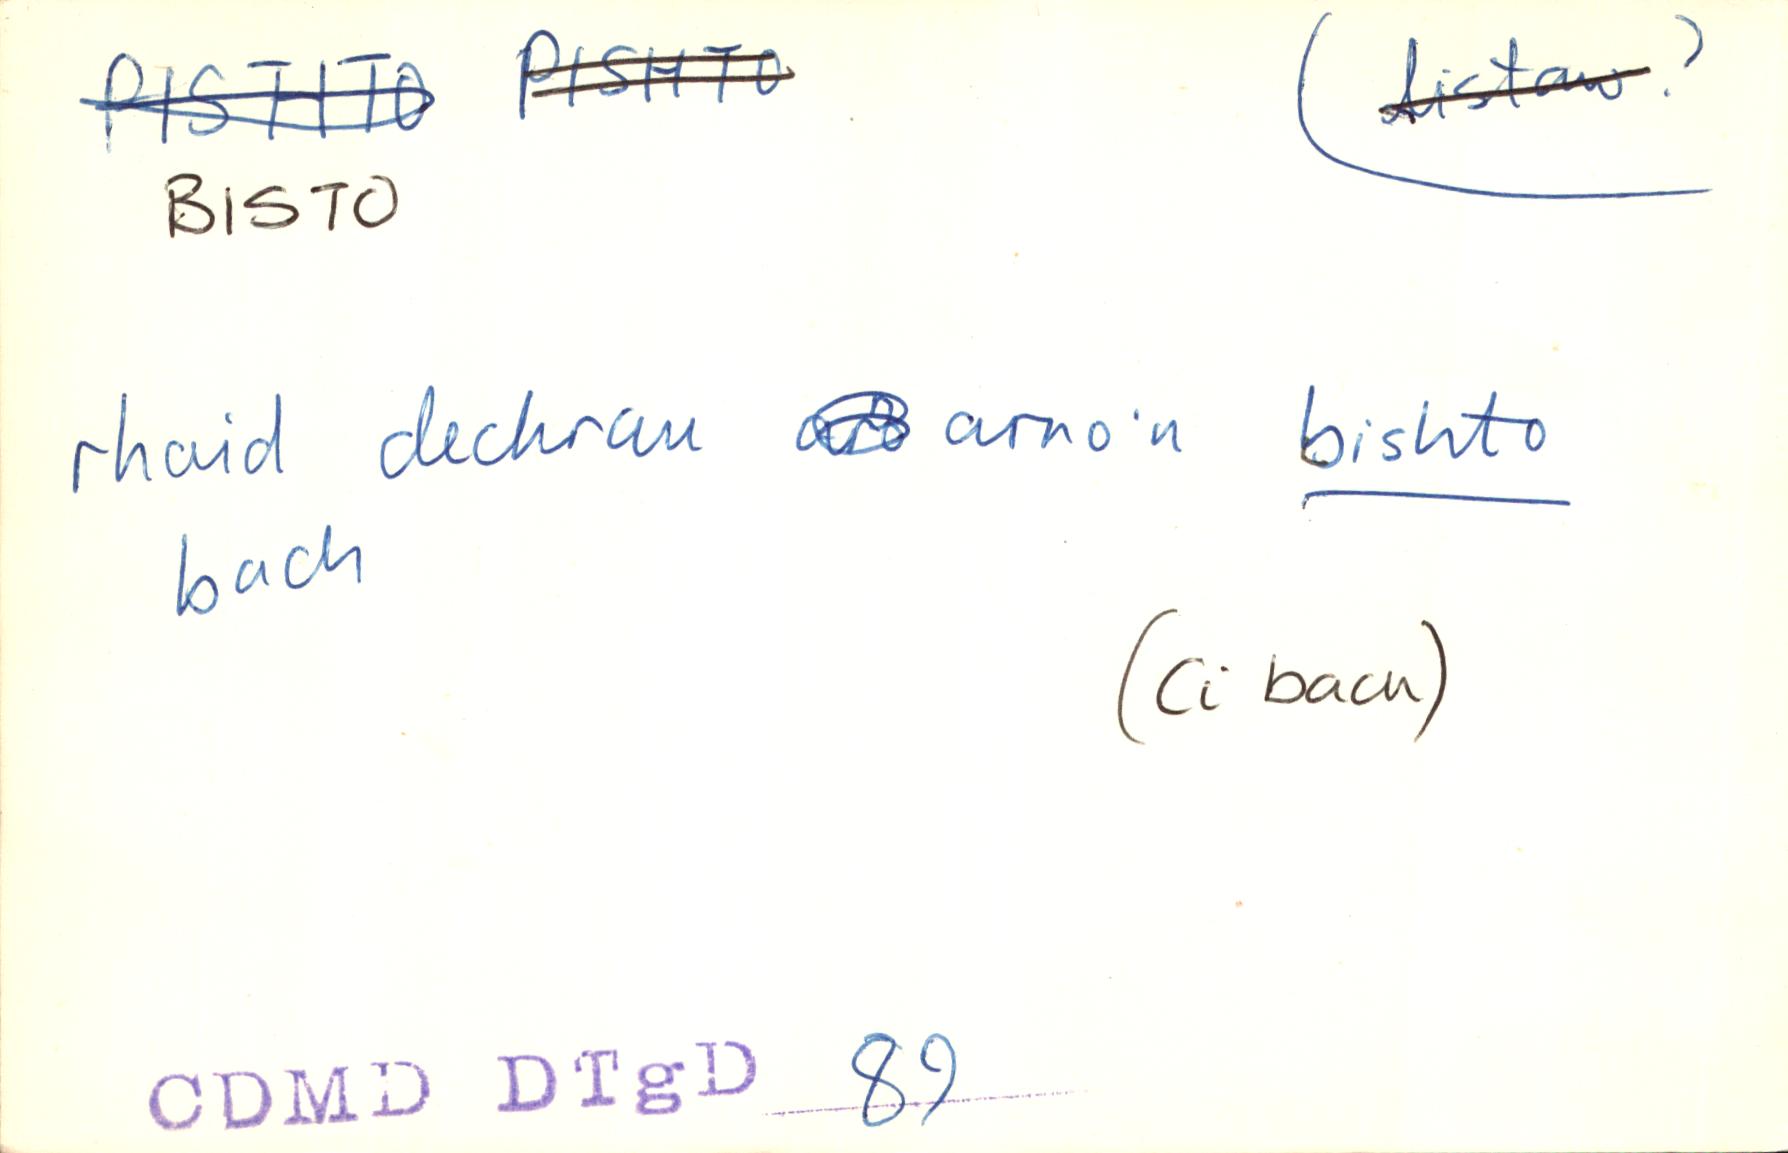 PISTITO PISHTO (distaw?
BISTO
rhaid dechrau arno'n bishto
bach
(Ci bach)
CDMD DTgD 89